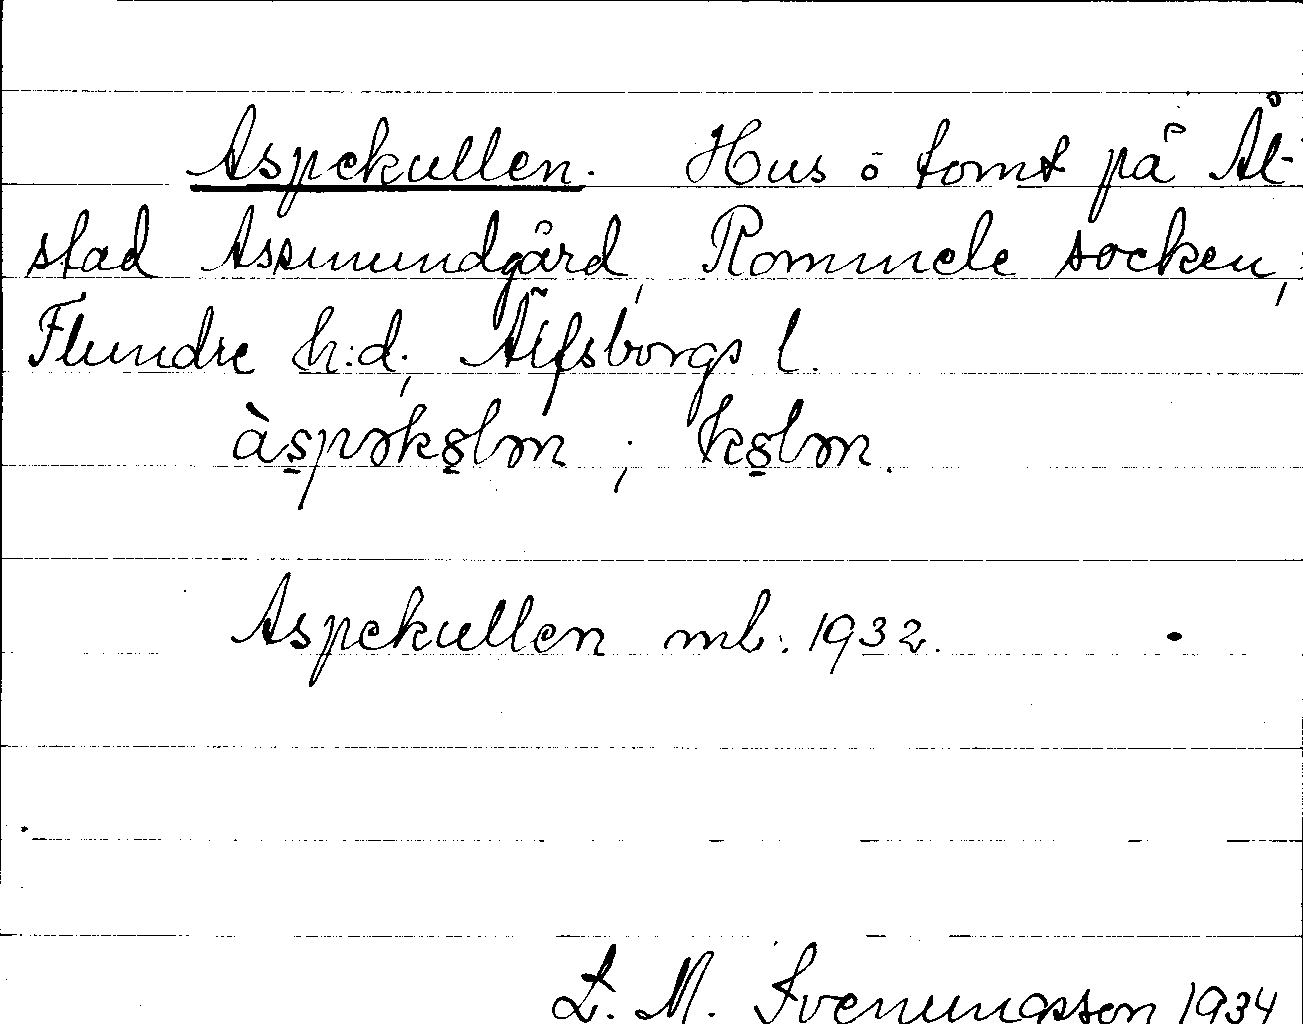 Aspekullen. Hus o tomt på Ål-
stad Assmundgård, Rommele socken,
Flundre h:d; Älfsborgs l.
àspəkolən ; kolən.
Aspekullen mb. 1932.
L. M. Svenungsson 1934